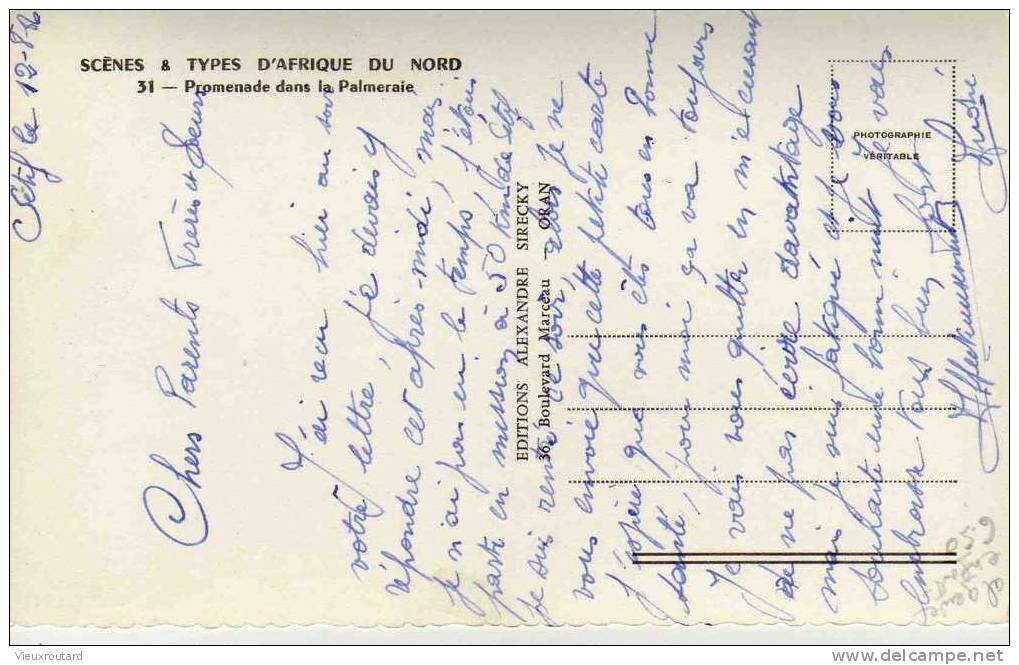 SCÈNES & TYPES D'AFRIQUE DU NORD
31 — Promenade dans la Palmeraie
PHOTOGRAPHIE
VÉRITABLE
EDITIONS ALEXANDRE SIRECKY
36, Boulevard Marceau - ORAN
Sétif le 12-8-56
Chers Parents Frères et Soeurs
J'ai reçu hier au soir
votre lettre, Je devais y
répondre cet après-midi mais
je n'ai pas eu le temps, j'étais
partis en mission à 50 km de Sétif
je suis rentré ce soir, alors je ne
vous envoie que cette petite carte
J'espère que vous êtes tous en bonne
santé, pour moi ça va toujours
Je vais vous quitter en m'excusant
de ne pas écrire davantage
mais je suis fatigué et je vous
souhaite une bonne nuit Je vous
embrasse tous bien fort
Affectueusement
André
6.50